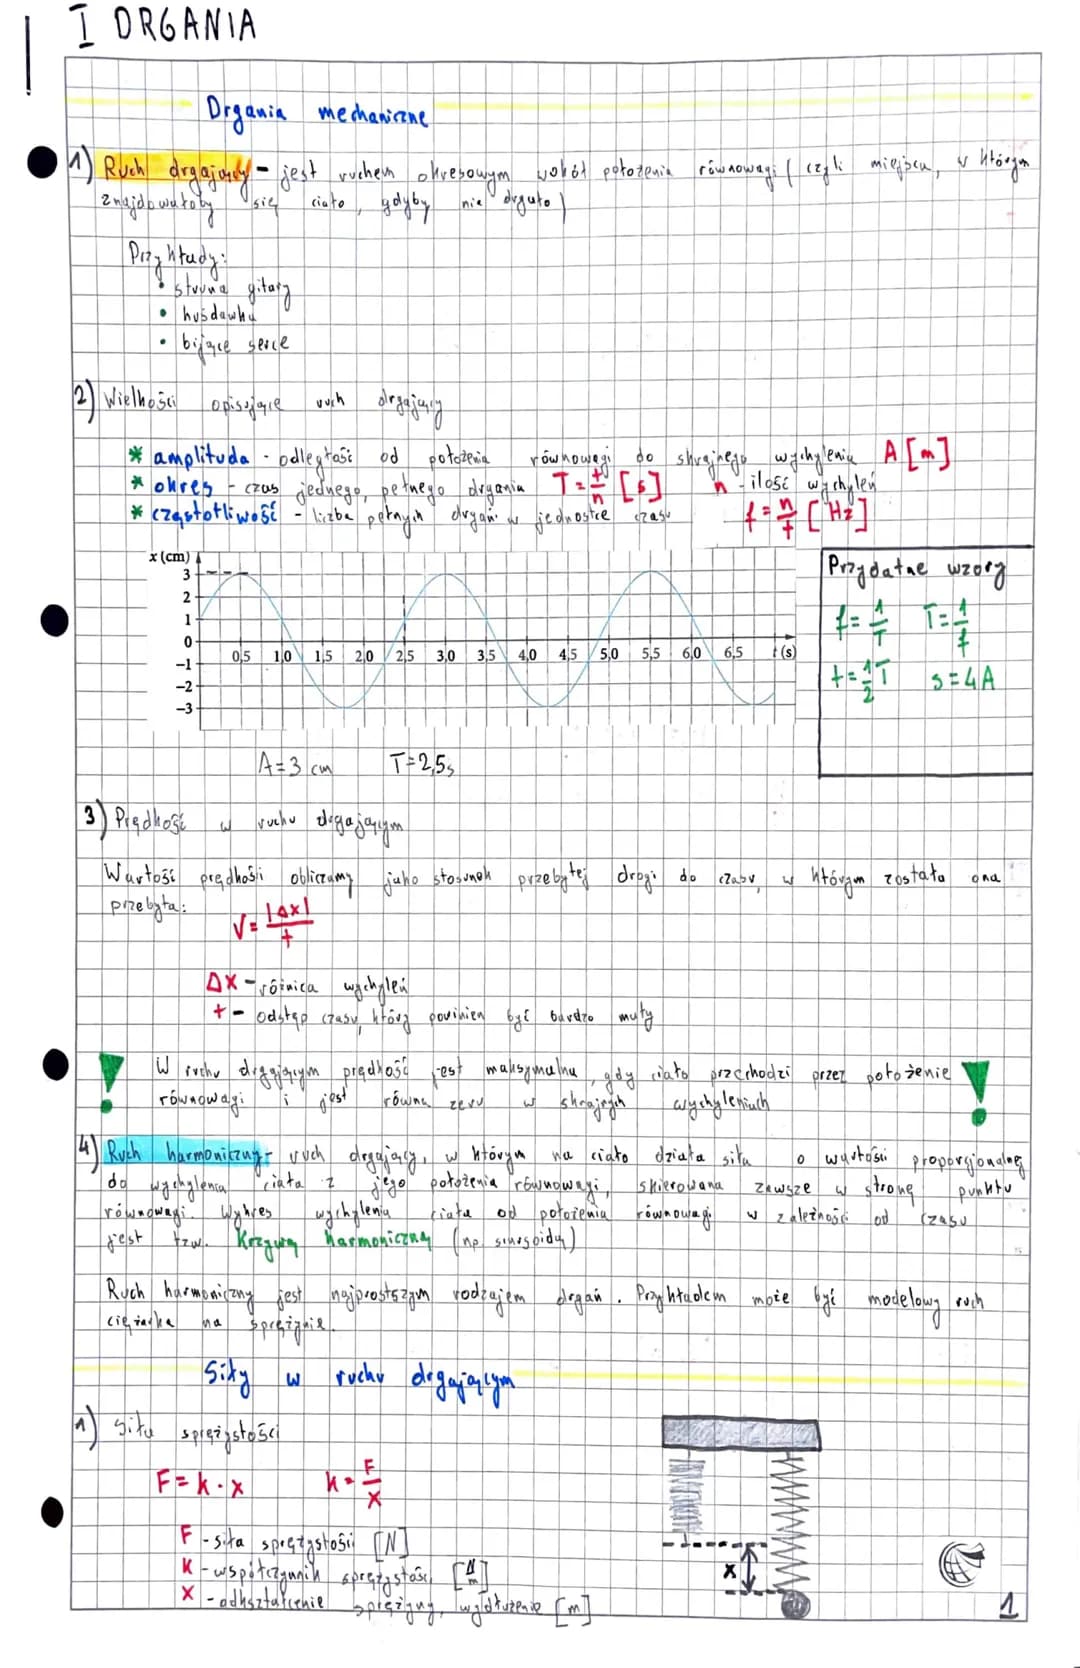 I DRGANIA
Drgania mechaniczne
1) Ruch drgający - jest ruchem okresowym wokół położenia równowagi ( czyli miejsca, w którym
znajdowałoby się ciało, gdyby nie drgało)
Przykłady:
• struna gitary
• huśdawka
• bijące serce
2) Wielkości opisujące ruch drgający
* amplituda - odległość od położenia równowagi do skrajnego wychylenia A [m]
* okres - czas jednego, pełnego drgania T = t/n [s] n - ilość wychyleń
* częstotliwość - liczba pełnych drgań w jednostce czasu f = n/t [Hz]
x (cm)
3
2
1
0
−1
−2
−3
0,5 1,0 1,5 2,0 2,5 3,0 3,5 4,0 4,5 5,0 5,5 6,0 6,5 t (s)
Przydatne wzory
f = 1/T T = 1/f
t = 1/2 T s = 4A
A = 3 cm T = 2,5s
3) Prędkość w ruchu drgającym
Wartość prędkości obliczamy jako stosunek przebytej drogi do czasu, w którym została ona
przebyta:
V = |Δx|/t
Δx - różnica wychyleń
t - odstęp czasu, który powinien być bardzo mały
! W ruchu drgającym prędkość jest maksymalna, gdy ciało przechodzi przez położenie !
równowagi i jest równa zeru w skrajnych wychyleniach
4) Ruch harmoniczny - ruch drgający, w którym na ciało działa siła o wartości proporcjonalnej
do wychylenia ciała z jego położenia równowagi, skierowana zawsze w stronę punktu
równowagi. Wykres wychylenia ciała od położenia równowagi w zależności od czasu
jest tzw. Krzywą harmoniczną (np. sinusoidą)
Ruch harmoniczny jest najprostszym rodzajem drgań. Przykładem może być modelowy ruch
ciężarka na sprężynie.
Siły w ruchu drgającym
1) Siła sprężystości
F = k · x k = F/x
F - siła sprężystości [N]
K - współczynnik sprężystości [N/m]
X - odkształcenie sprężyny, wydłużenie [m]
x
1